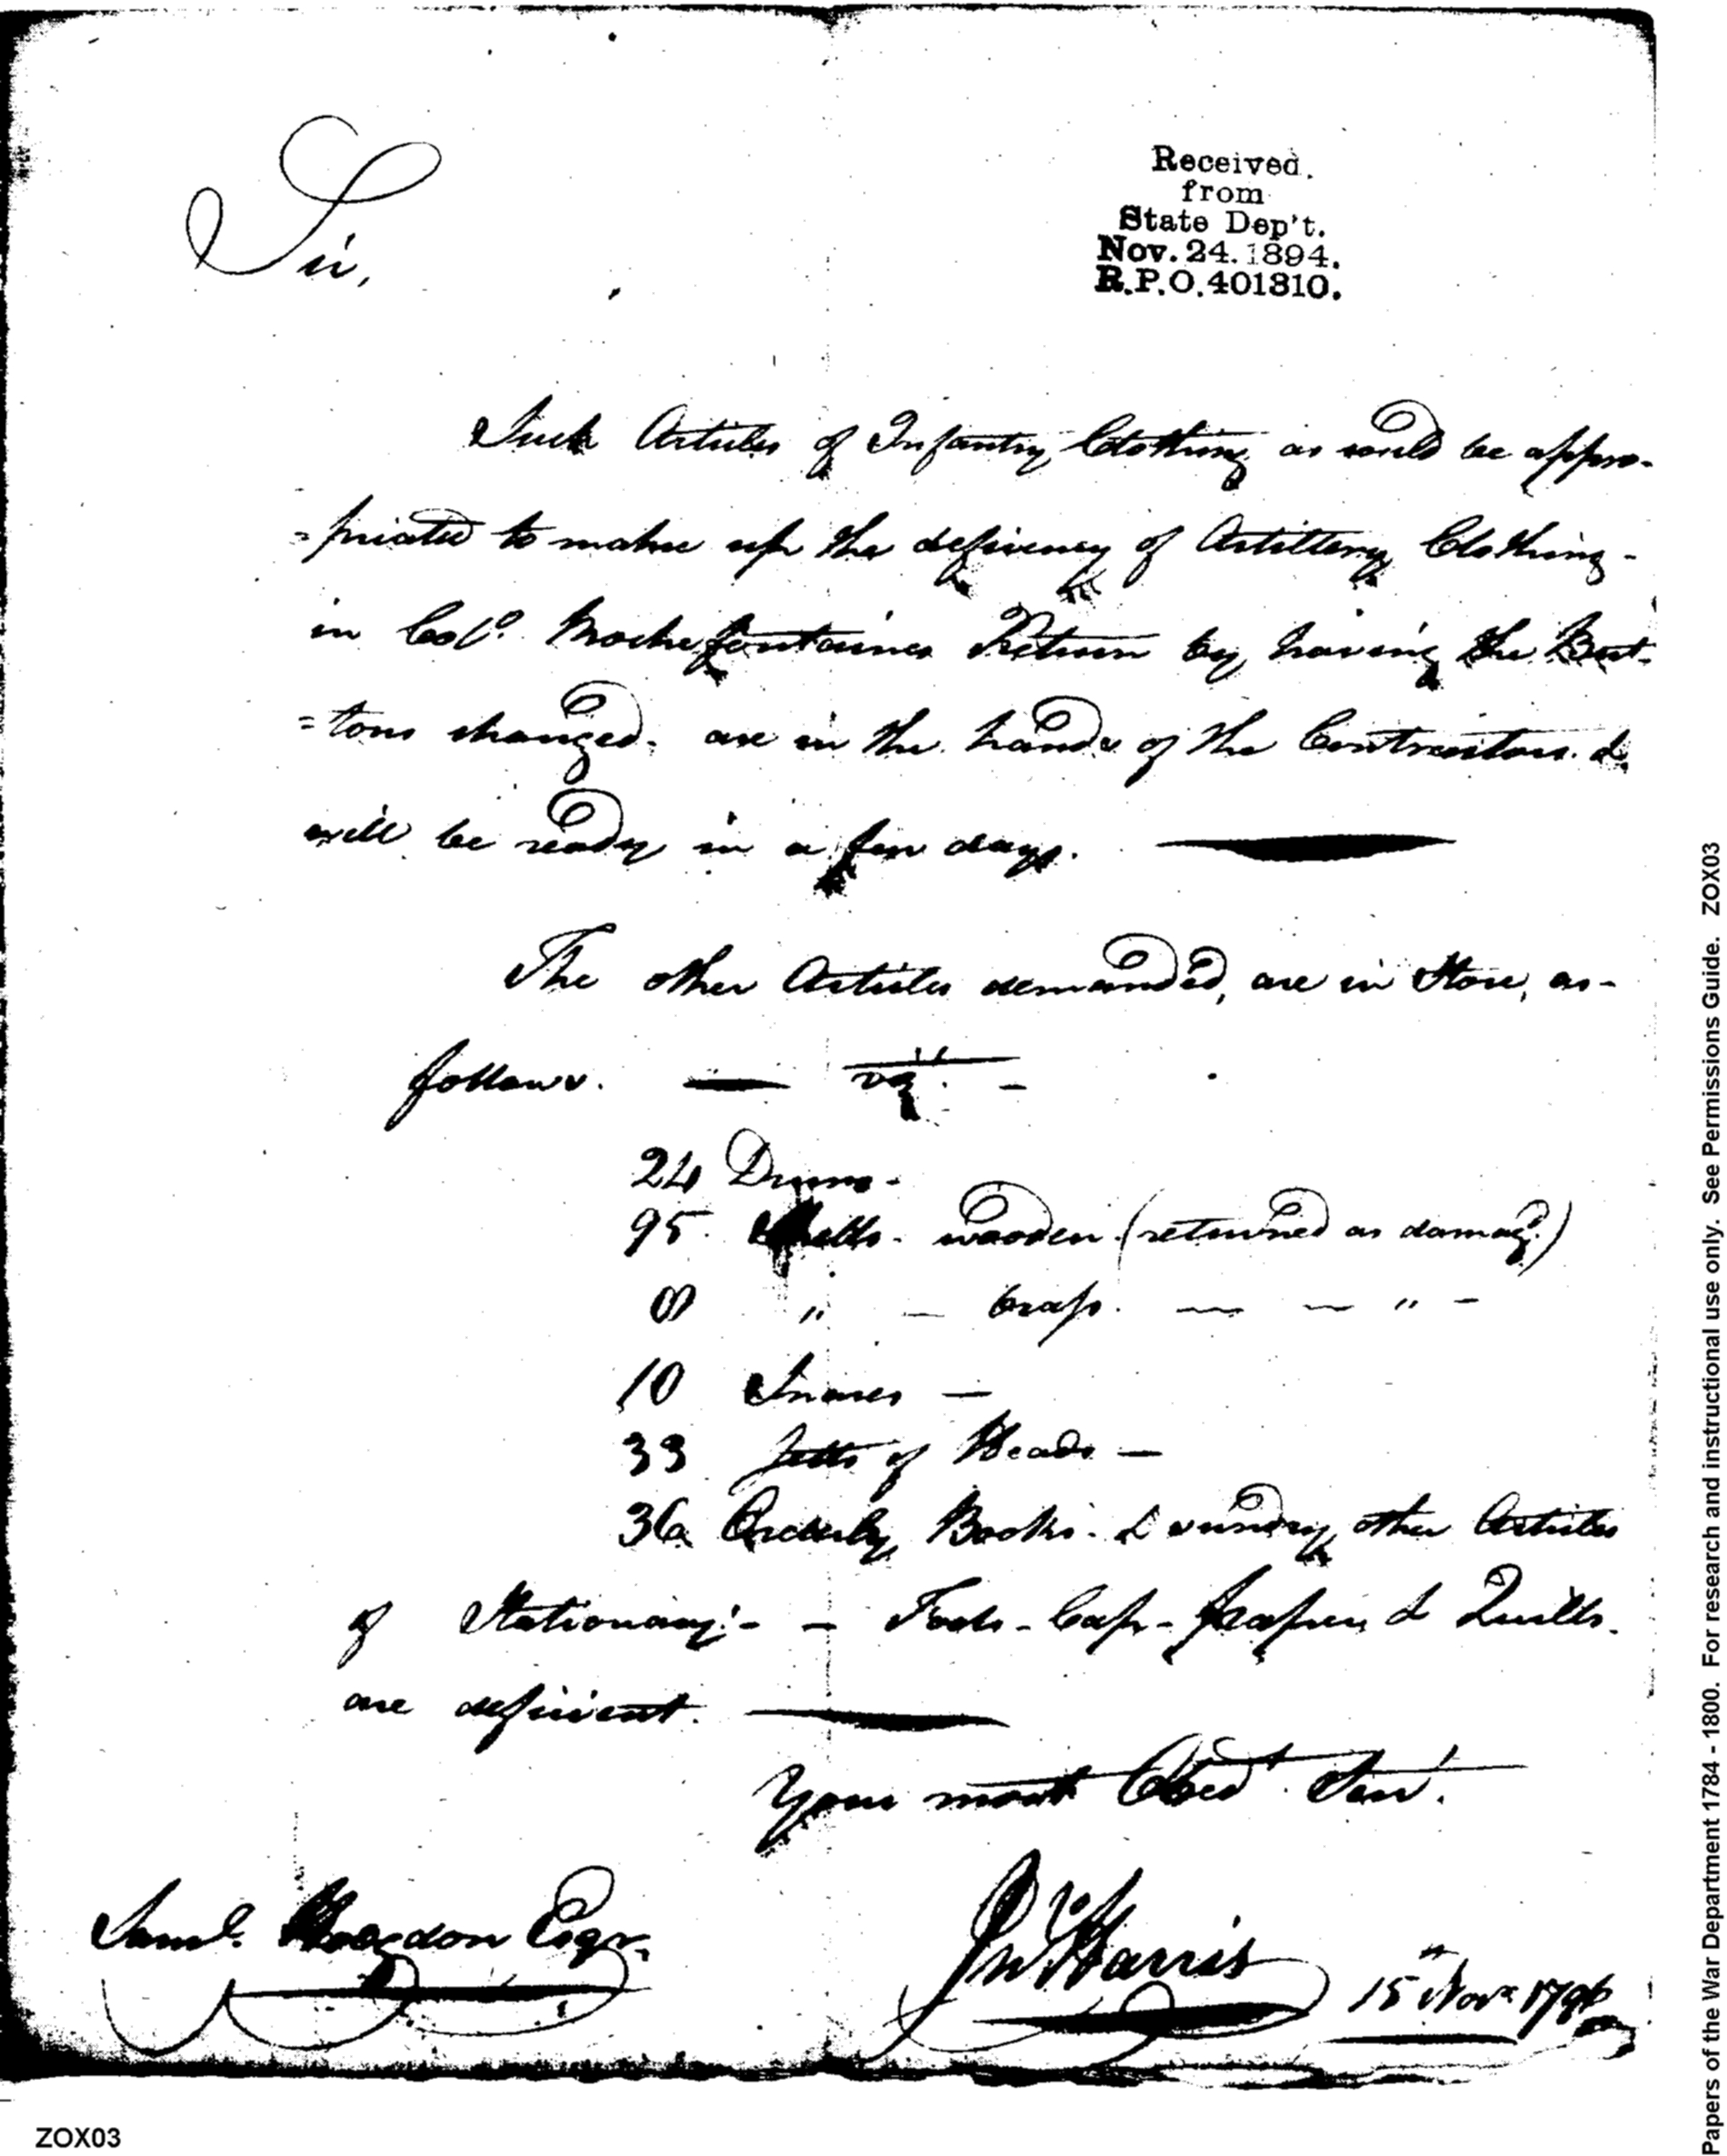 Sir,
Received.
from
State Dep't.
Nov. 24. 1894.
R.P.O. 401310.
Such Articles of Infantry Clothing as could be appro-
=priated to make up the defiency of Artillery Clothing -
in Colo. Rochefontaines Return by having the But-
=tons changed. are in the hands of the Contractors. &
will be ready in a few days.
The other Articles demanded, are in Store, as -
follows. — viz. -
24 Drums -
95. Shells - wooden (returned as damagd.)
8 " - brass. — — " -
10 Snares —
33 setts of Heads —
36 Orderly Books - & sundry other Articles
of Stationary: - - Fools - Cap - paper & Quills.
are deficient.
Your most Obedt. Servt.
Saml. Hodgdon Esqr.
Jn Harris 15th Novr 1796
ZOX03
Papers of the War Department 1784 - 1800. For research and instructional use only. See Permissions Guide. ZOX03